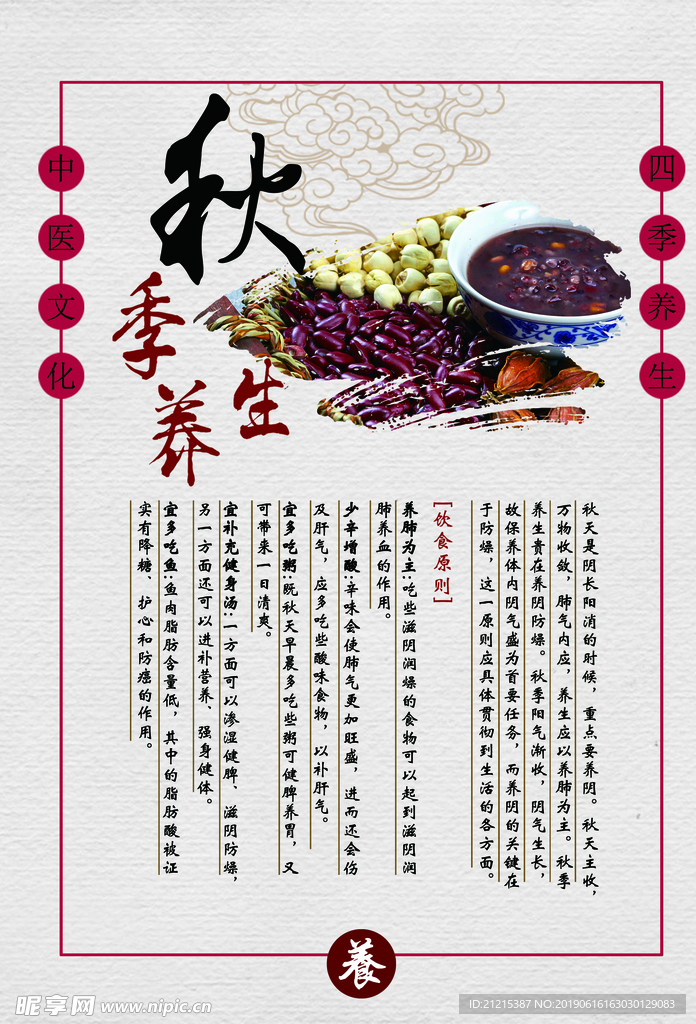 秋
季
养
生
中医文化
四季养生
秋天是阴长阳消的时候，重点要养阴。秋天主收，
万物收敛，肺气内应，养生应以养肺为主。秋季
养生贵在养阴防燥。秋季阳气渐收，阴气生长，
故保养体内阴气盛为首要任务，而养阴的关键在
于防燥，这一原则应具体贯彻到生活的各方面。
[饮食原则]
养肺为主:吃些滋阴润燥的食物可以起到滋阴润
肺养血的作用。
少辛增酸:辛味会使肺气更加旺盛，进而还会伤
及肝气，应多吃些酸味食物，以补肝气。
宜多吃粥:既秋天早晨多吃些粥可健脾养胃，又
可带来一日清爽。
宜补充健身汤:一方面可以渗湿健脾、滋阴防燥，
另一方面还可以进补营养、强身健体。
宜多吃鱼:鱼肉脂肪含量低，其中的脂肪酸被证
实有降糖、护心和防癌的作用。
養
昵享网 www.nipic.cn
ID:21215387 NO:20190616163030129083